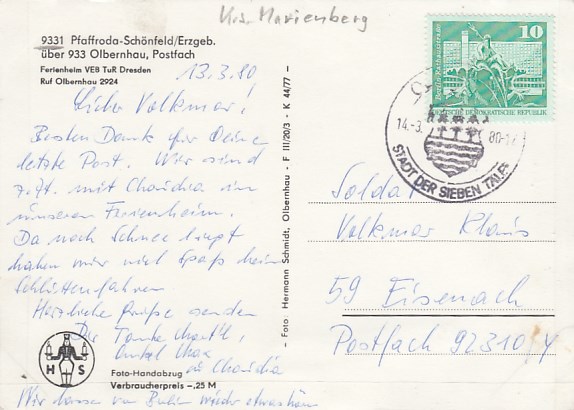 Krs. Marienberg
9331 Pfaffroda-Schönfeld/Erzgeb.
über 933 Olbernhau, Postfach
Ferienheim VEB TuR Dresden
Ruf Olbernhau 2924
13.3.80
Lieber Volkmar,
Besten Dank für Deine
letzte Post. Wir sind
z.Zt. mit Claudia in
unserem Ferienheim.
Da noch Schnee liegt
haben wir viel Spaß beim
Schlittenfahren.
Herzliche Grüße senden
Dir Tante
Onkel Max
u. Claudia
Wir lassen von wieder etwas hören
H S
Foto-Handabzug
Verbraucherpreis -,25 M
- Foto Hermann Schmidt, Olbernhau - F III/20/3 - K 44/77 -
10
DEUTSCHE DEMOKRATISCHE REPUBLIK
14.-3. 80-17
STADT DER SIEBEN TÄLER
Soldat
Volkmar Klaus
59 Eisenach
Postfach 92310/Y